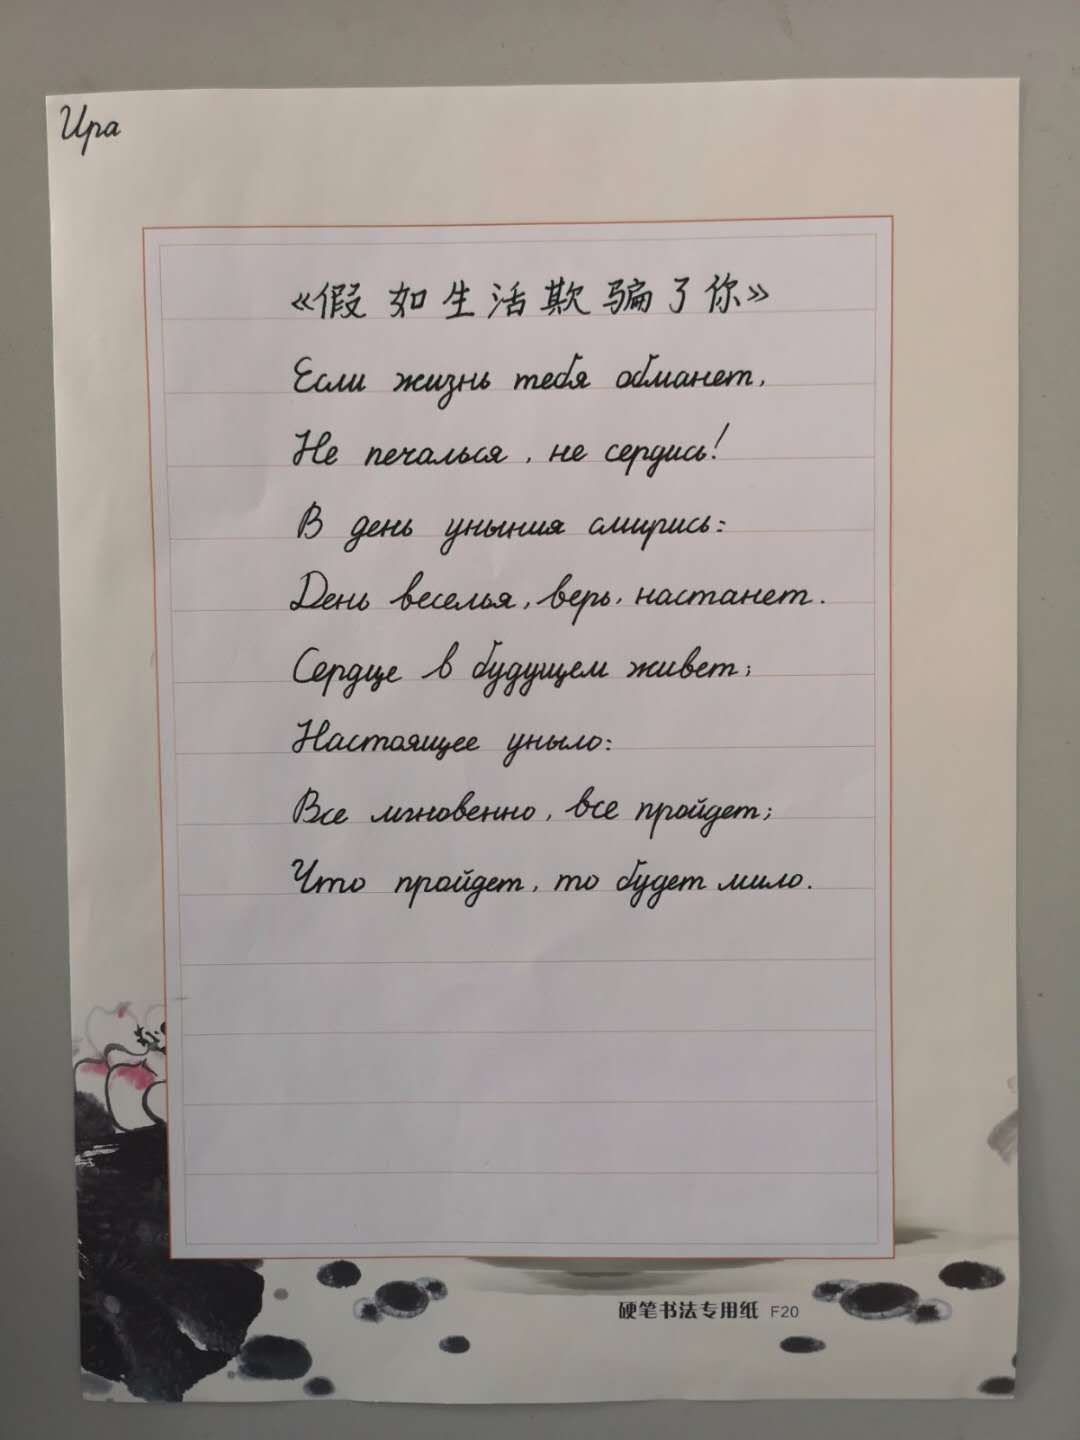 Ира
《假如生活欺骗了你》
Если жизнь тебя обманет,
Не печалься, не сердись!
В день уныния смирись:
День веселья, верь, настанет.
Сердце в будущем живет;
Настоящее уныло:
Все мгновенно, все пройдет;
Что пройдет, то будет мило.
硬笔书法专用纸 F20